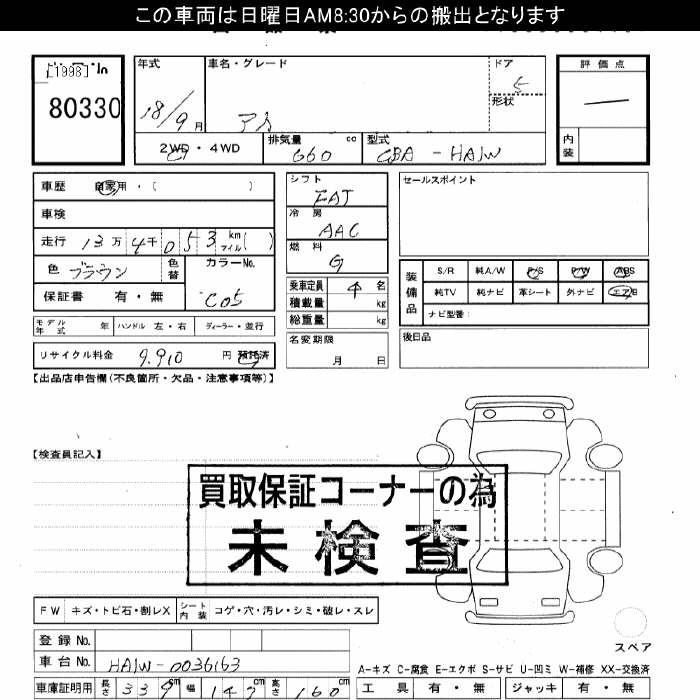 この車両は日曜日AM8:30からの搬出となります
[1998]
80330
年式
18/9月
車名・グレード
アイ
ドア
5
形状
評価点
—
内装
2WD・4WD
排気量 660 cc
型式 CBA - HA1W
車歴 自家用・( )
車検
走行 13万4千053 km マイル( )
色 ブラウン 色替
カラーNo. C05
保証書 有・無
モデル年式 年 ハンドル 左・右 ディーラー・並行
リサイクル料金 9.910 円 預託済
シフト
FAT
冷房
AAC
燃料
G
乗車定員 4 名
積載量 kg
総重量 kg
名変期限
月 日
セールスポイント
装備品
S/R 純A/W P/S P/W ABS
純TV 純ナビ 革シート 外ナビ エアB
ナビ型番:
後日品
【出品店申告欄(不良箇所・欠品・注意事項等)】
【検査員記入】
買取保証コーナーの為
未検査
FW キズ・トビ石・割レX シート内装 コゲ・穴・汚レ・シミ・破レ・スレ
登録No.
車台No. HA1W-0036163
スペア
A-キズ C-腐食 E-エクボ S-サビ U-凹ミ W-補修 XX-交換済
車庫証明用 長さ 339 cm 幅 147 cm 高さ 160 cm
工具 有・無 ジャッキ 有・無